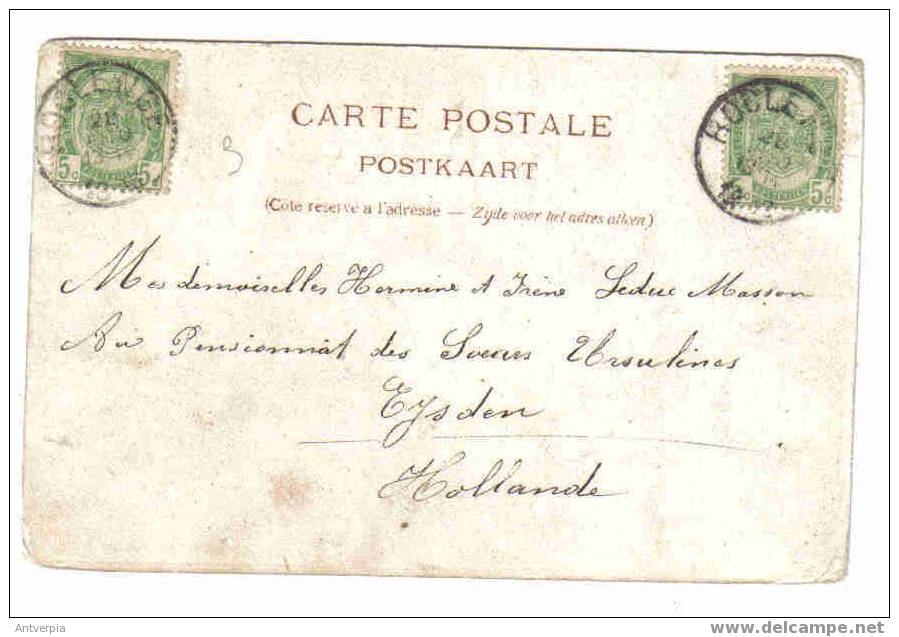 ROCLENGE
5c 5c
ROCLEN
5c
3
CARTE POSTALE
POSTKAART
(Côté réservé à l'adresse — Zijde voor het adres alleen)
Mes demoiselles Hermine et Irène Leduc Masson
Au Pensionnat des Soeurs Ursulines
Eysden
Hollande
Antverpia
www.delcampe.net